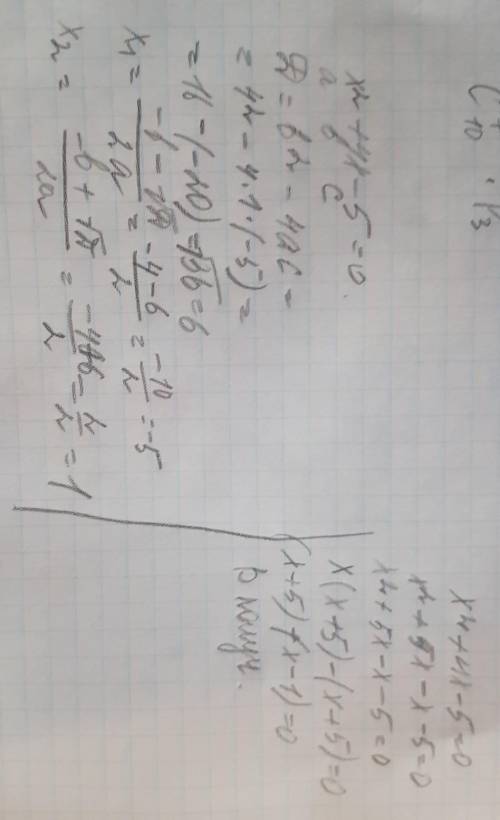 x² + 4x - 5 = 0.
a b c
D = b² - 4ac =
= 4² - 4·1·(-5) =
= 16 - (-20) = √36 = 6
x₁ = (-b - √D)/2a = (-4-6)/2 = -10/2 = -5
x₂ = (-b + √D)/2a = (-4+6)/2 = 2/2 = 1
x² + 4x - 5 = 0
x² + 5x - x - 5 = 0
x² + 5x - x - 5 = 0
x(x+5) - (x+5) = 0
(x+5)(x-1) = 0